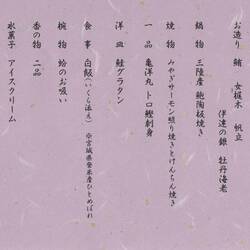 お造り 鮪 女梶木 帆立
伊達の銀 牡丹海老
鍋物 三陸産 鮑陶板焼き
焼物 みやぎサーモン照り焼きとけんちん焼き
一品 亀洋丸 トロ鰹刺身
洋皿 鮭グラタン
食事 白飯(いくら添え) ※宮城県登米産ひとめぼれ
椀物 蛤のお吸い
香の物 二品
水菓子 アイスクリーム